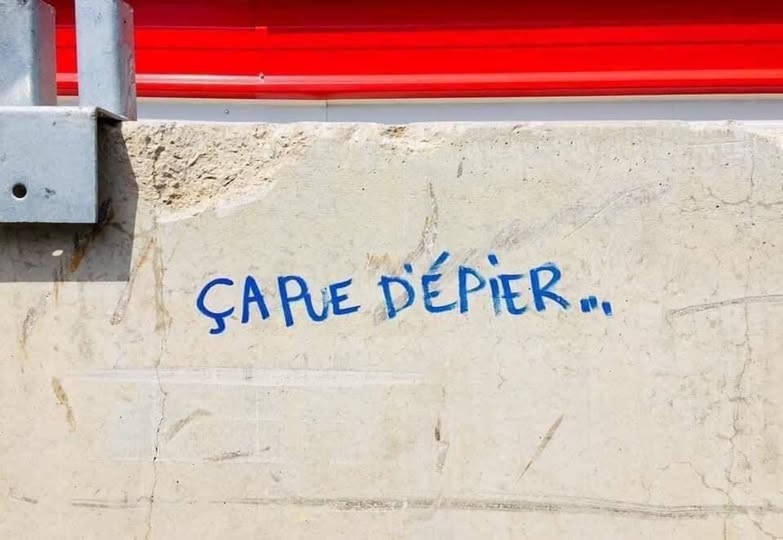 ÇA PUE D'ÉPIER...